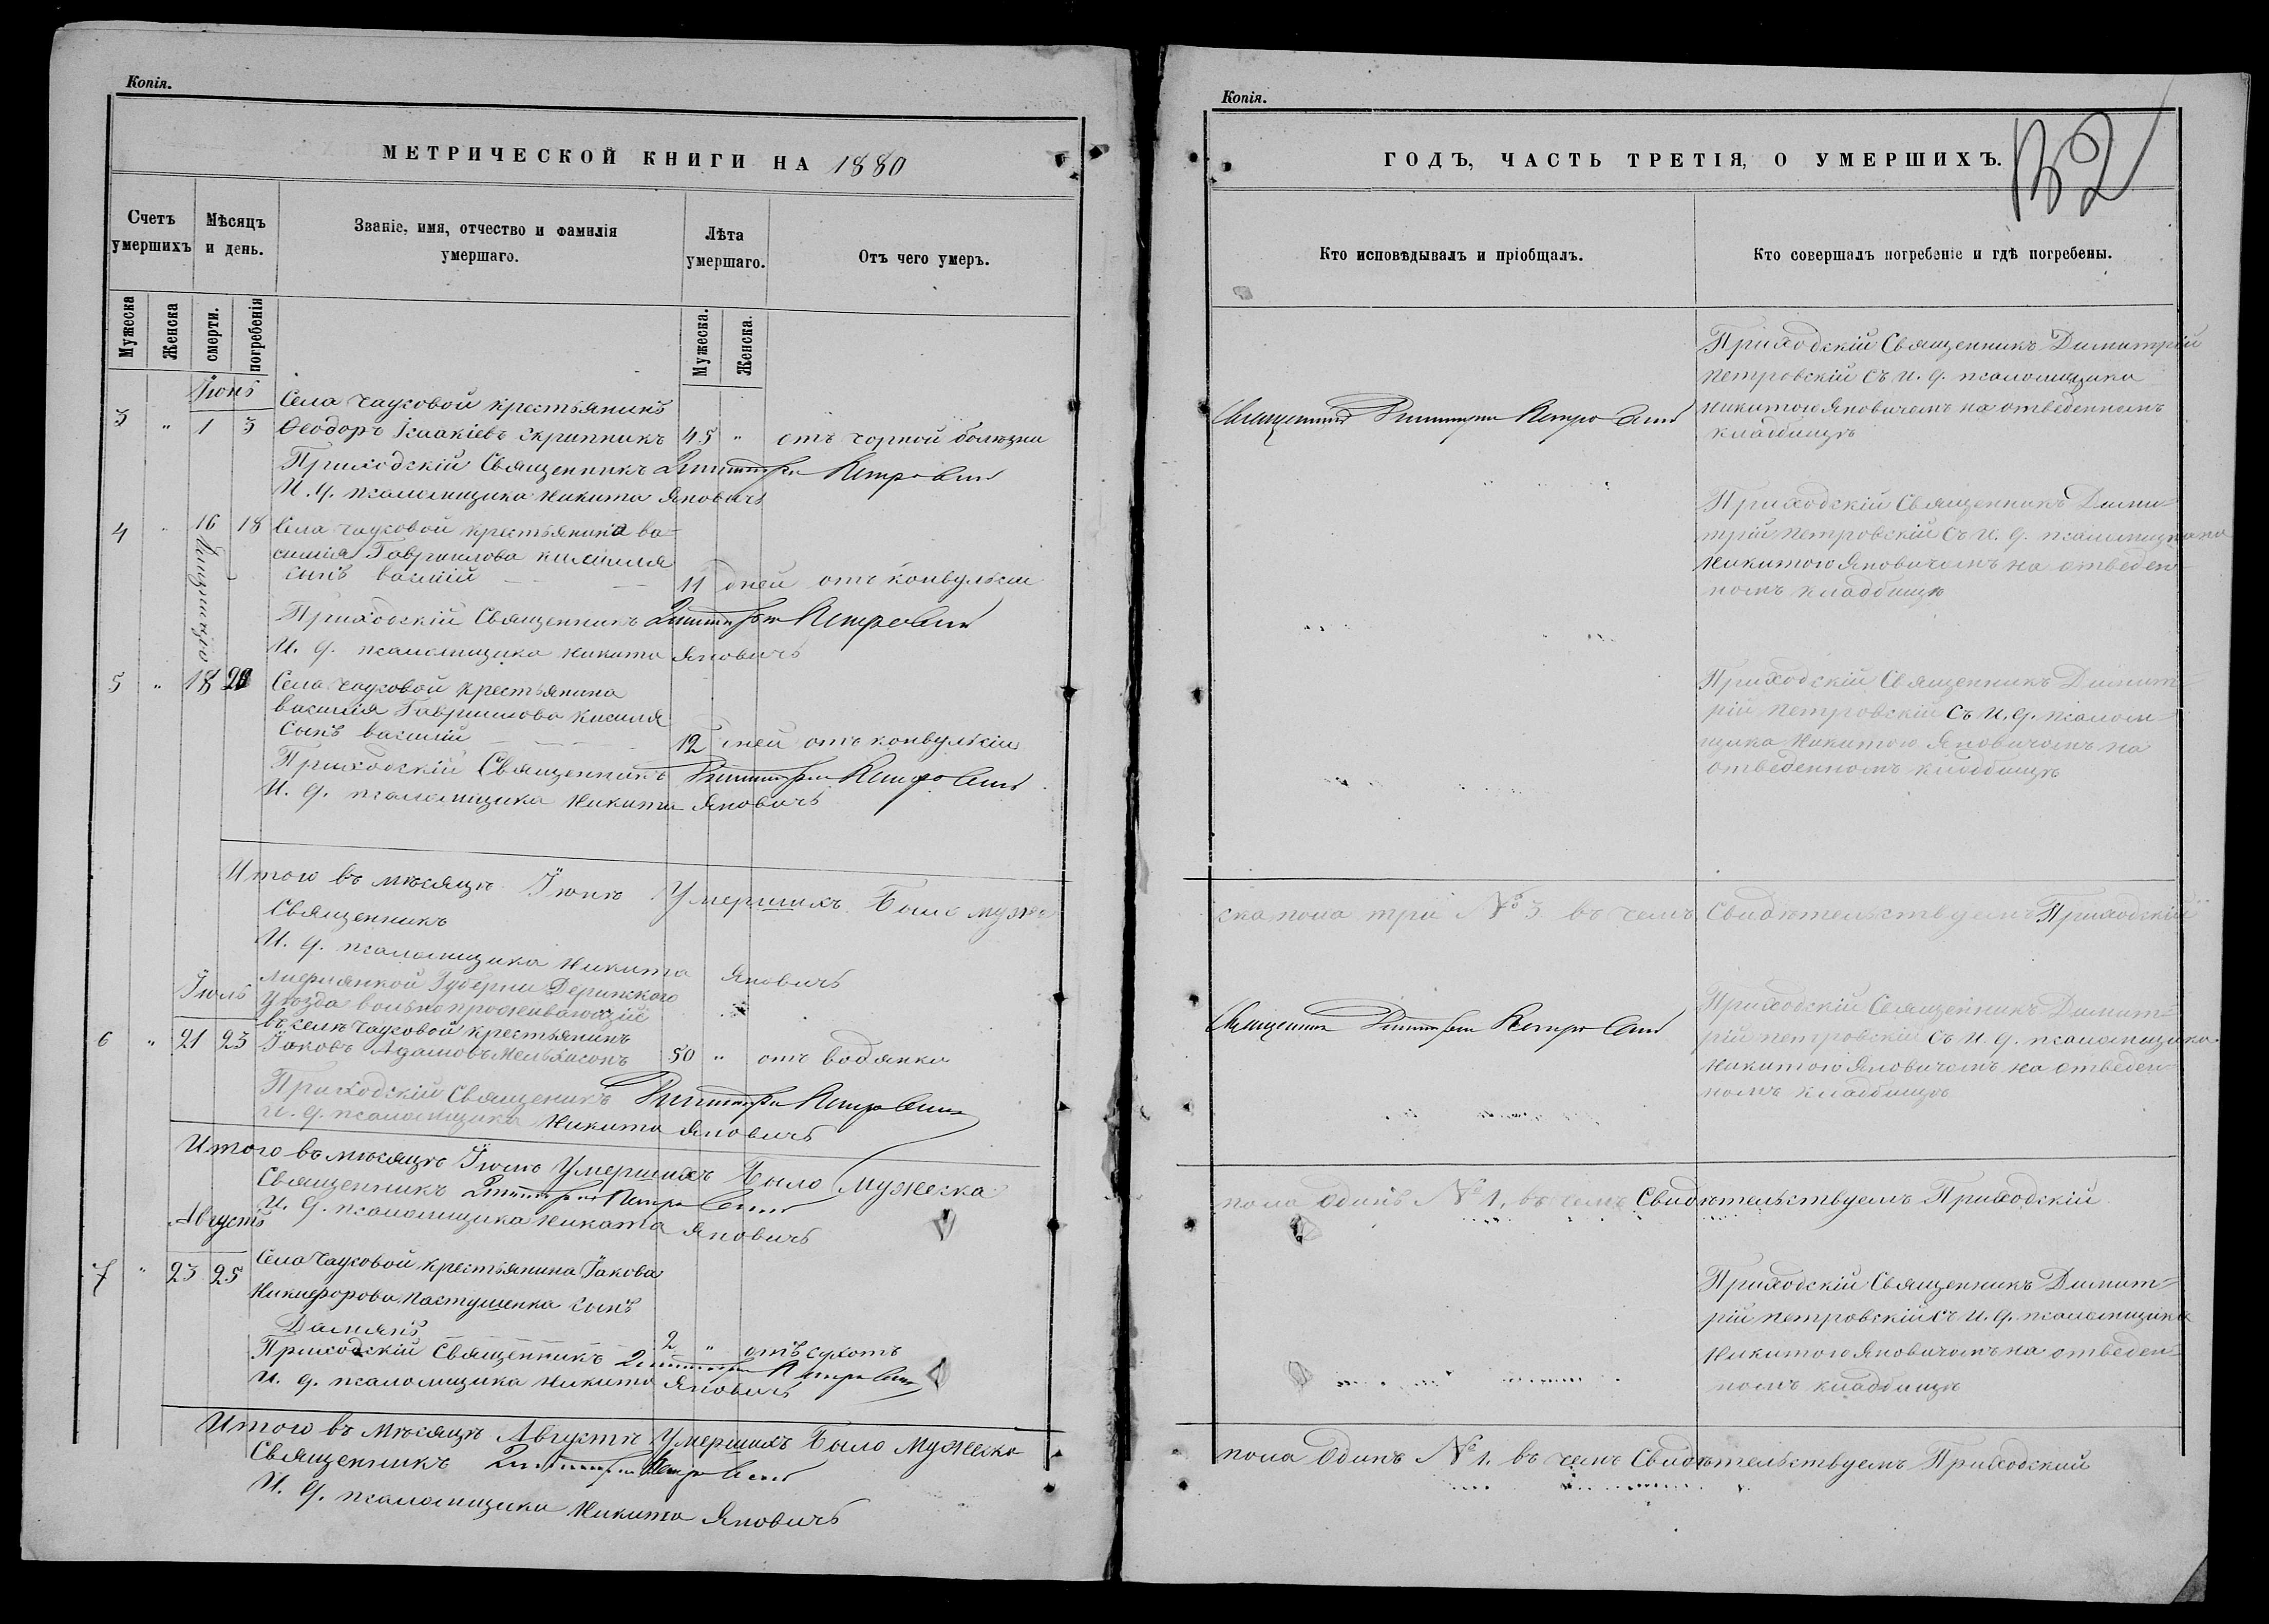 Копія.
МЕТРИЧЕСКОЙ КНИГИ НА 1880
Счетъ умершихъ
Мѣсяцъ и день.
Званіе, имя, отчество и фамилія умершаго.
Лѣта умершаго.
Отъ чего умеръ.
Мужеска
Женска
смерти.
погребенія
Мужеска.
Женска.
Іюнь
Села Чауховой крестьянинъ
3 " 1 3 Ѳеодоръ Ісаакіевъ Скрипникъ 45 " отъ чорной болезни
Приходскій Священникъ Димитрій Петровскій
И. д. псаломщика Никита Яновичъ
4 " 16 18 Села Чауховой крестьянина Ва-
силія Гавриилова Кисиля
сынъ Василій 11 дней отъ конвульсіи
Приходскій Священникъ Димитрій Петровскій
И. д. псаломщика Никита Яновичъ
5 " 18 20 Села Чауховой крестьянина
Василія Гавриилова Кисиля
Сынъ Василій 12 дней отъ конвульсіи
Приходскій Священникъ Димитрій Петровскій
И. д. псаломщика Никита Яновичъ
Итого въ мѣсяцѣ Іюнѣ Умершихъ было муже
Священникъ
И. д. псаломщика Никита Яновичъ
Іюль
Губерніи Дерптскаго
Уѣзда вольнопроживающій
въ селѣ Чауховой крестьянинъ
6 " 21 23 Іаковъ Адамовъ 50 " отъ водянки
Приходскій Священикъ Димитрій Петровскій
И. д. псаломщика Никита Яновичъ
Итого въ мѣсяцѣ Іюлѣ Умершихъ было Мужеска
Священникъ Димитрій Петровскій
И. д. псаломщика Никита Яновичъ
Августъ
7 " 23 25 Села Чауховой крестьянина Іакова
Никифорова Пастушенка сынъ
Даміянъ 2 " отъ сухотъ
Приходскій Священникъ Димитрій Петровскій
И. д. псаломщика Никита Яновичъ
Итого въ Мѣсяцѣ Августѣ Умершихъ было Мужеска
Священникъ Димитрій Петровскій
И. д. псаломщика Никита Яновичъ
Копія.
ГОДЪ, ЧАСТЬ ТРЕТІЯ, О УМЕРШИХЪ.
Кто исповѣдывалъ и пріобщалъ.
Кто совершалъ погребеніе и гдѣ погребены.
Священникъ Димитрій Петровскій
Приходскій Священникъ Димитрій
Петровскій съ И. д. псаломщика
Никитою Яновичемъ на отведенномъ
кладбищѣ
Приходскій Священникъ Дими-
трій Петровскій съ И. д. псаломщика
Никитою Яновичемъ на отведен-
номъ кладбищѣ
Приходскій Священникъ Димит-
рій Петровскій съ И. д. псалом-
щика Никитою Яновичомъ на
отведенномъ кладбищѣ
ска пола три № 3 въ чемъ Свидѣтельствуемъ Приходскій
Священникъ Димитрій Петровскій
Приходскій Священникъ Димит-
рій Петровскій съ И. д. псаломщика
Никитою Яновичемъ на отведен-
номъ кладбищѣ
пола Одинъ № 1. въ чемъ Свидѣтельствуемъ Приходскій
Приходскій Священникъ Димит-
рій Петровскій съ И. д. псаломщика
Никитою Яновичомъ на отведен-
номъ кладбищѣ
пола Одинъ № 1. въ чемъ Свидѣтельствуемъ Приходский